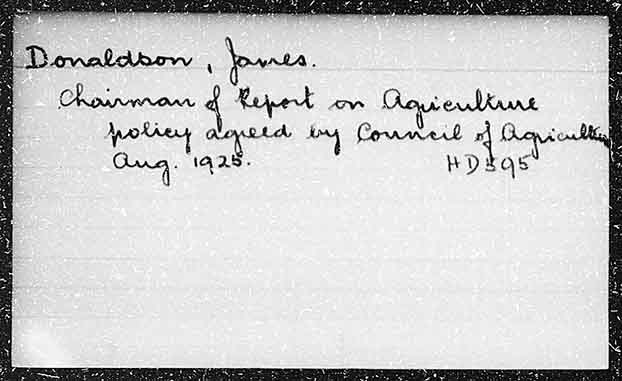 Donaldson, James.
Chairman of Report on Agriculture
policy agreed by Council of Agriculture
Aug. 1925. HD595